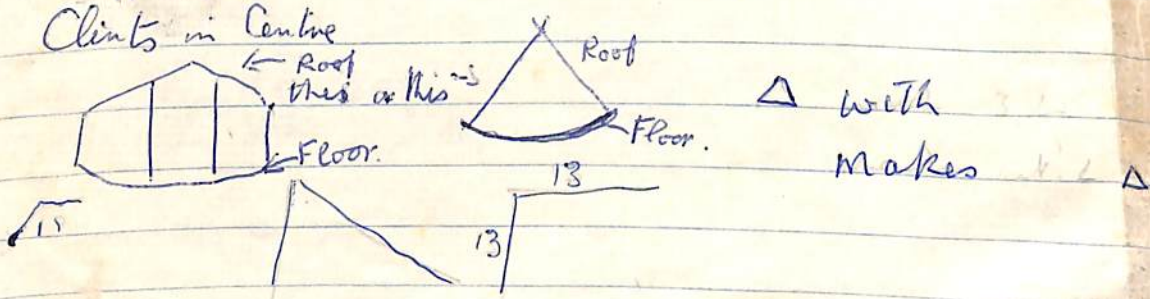 Clints in Centre
← Roof
this or this →
Floor.
Roof
Floor.
Δ with
Makes Δ
13
13